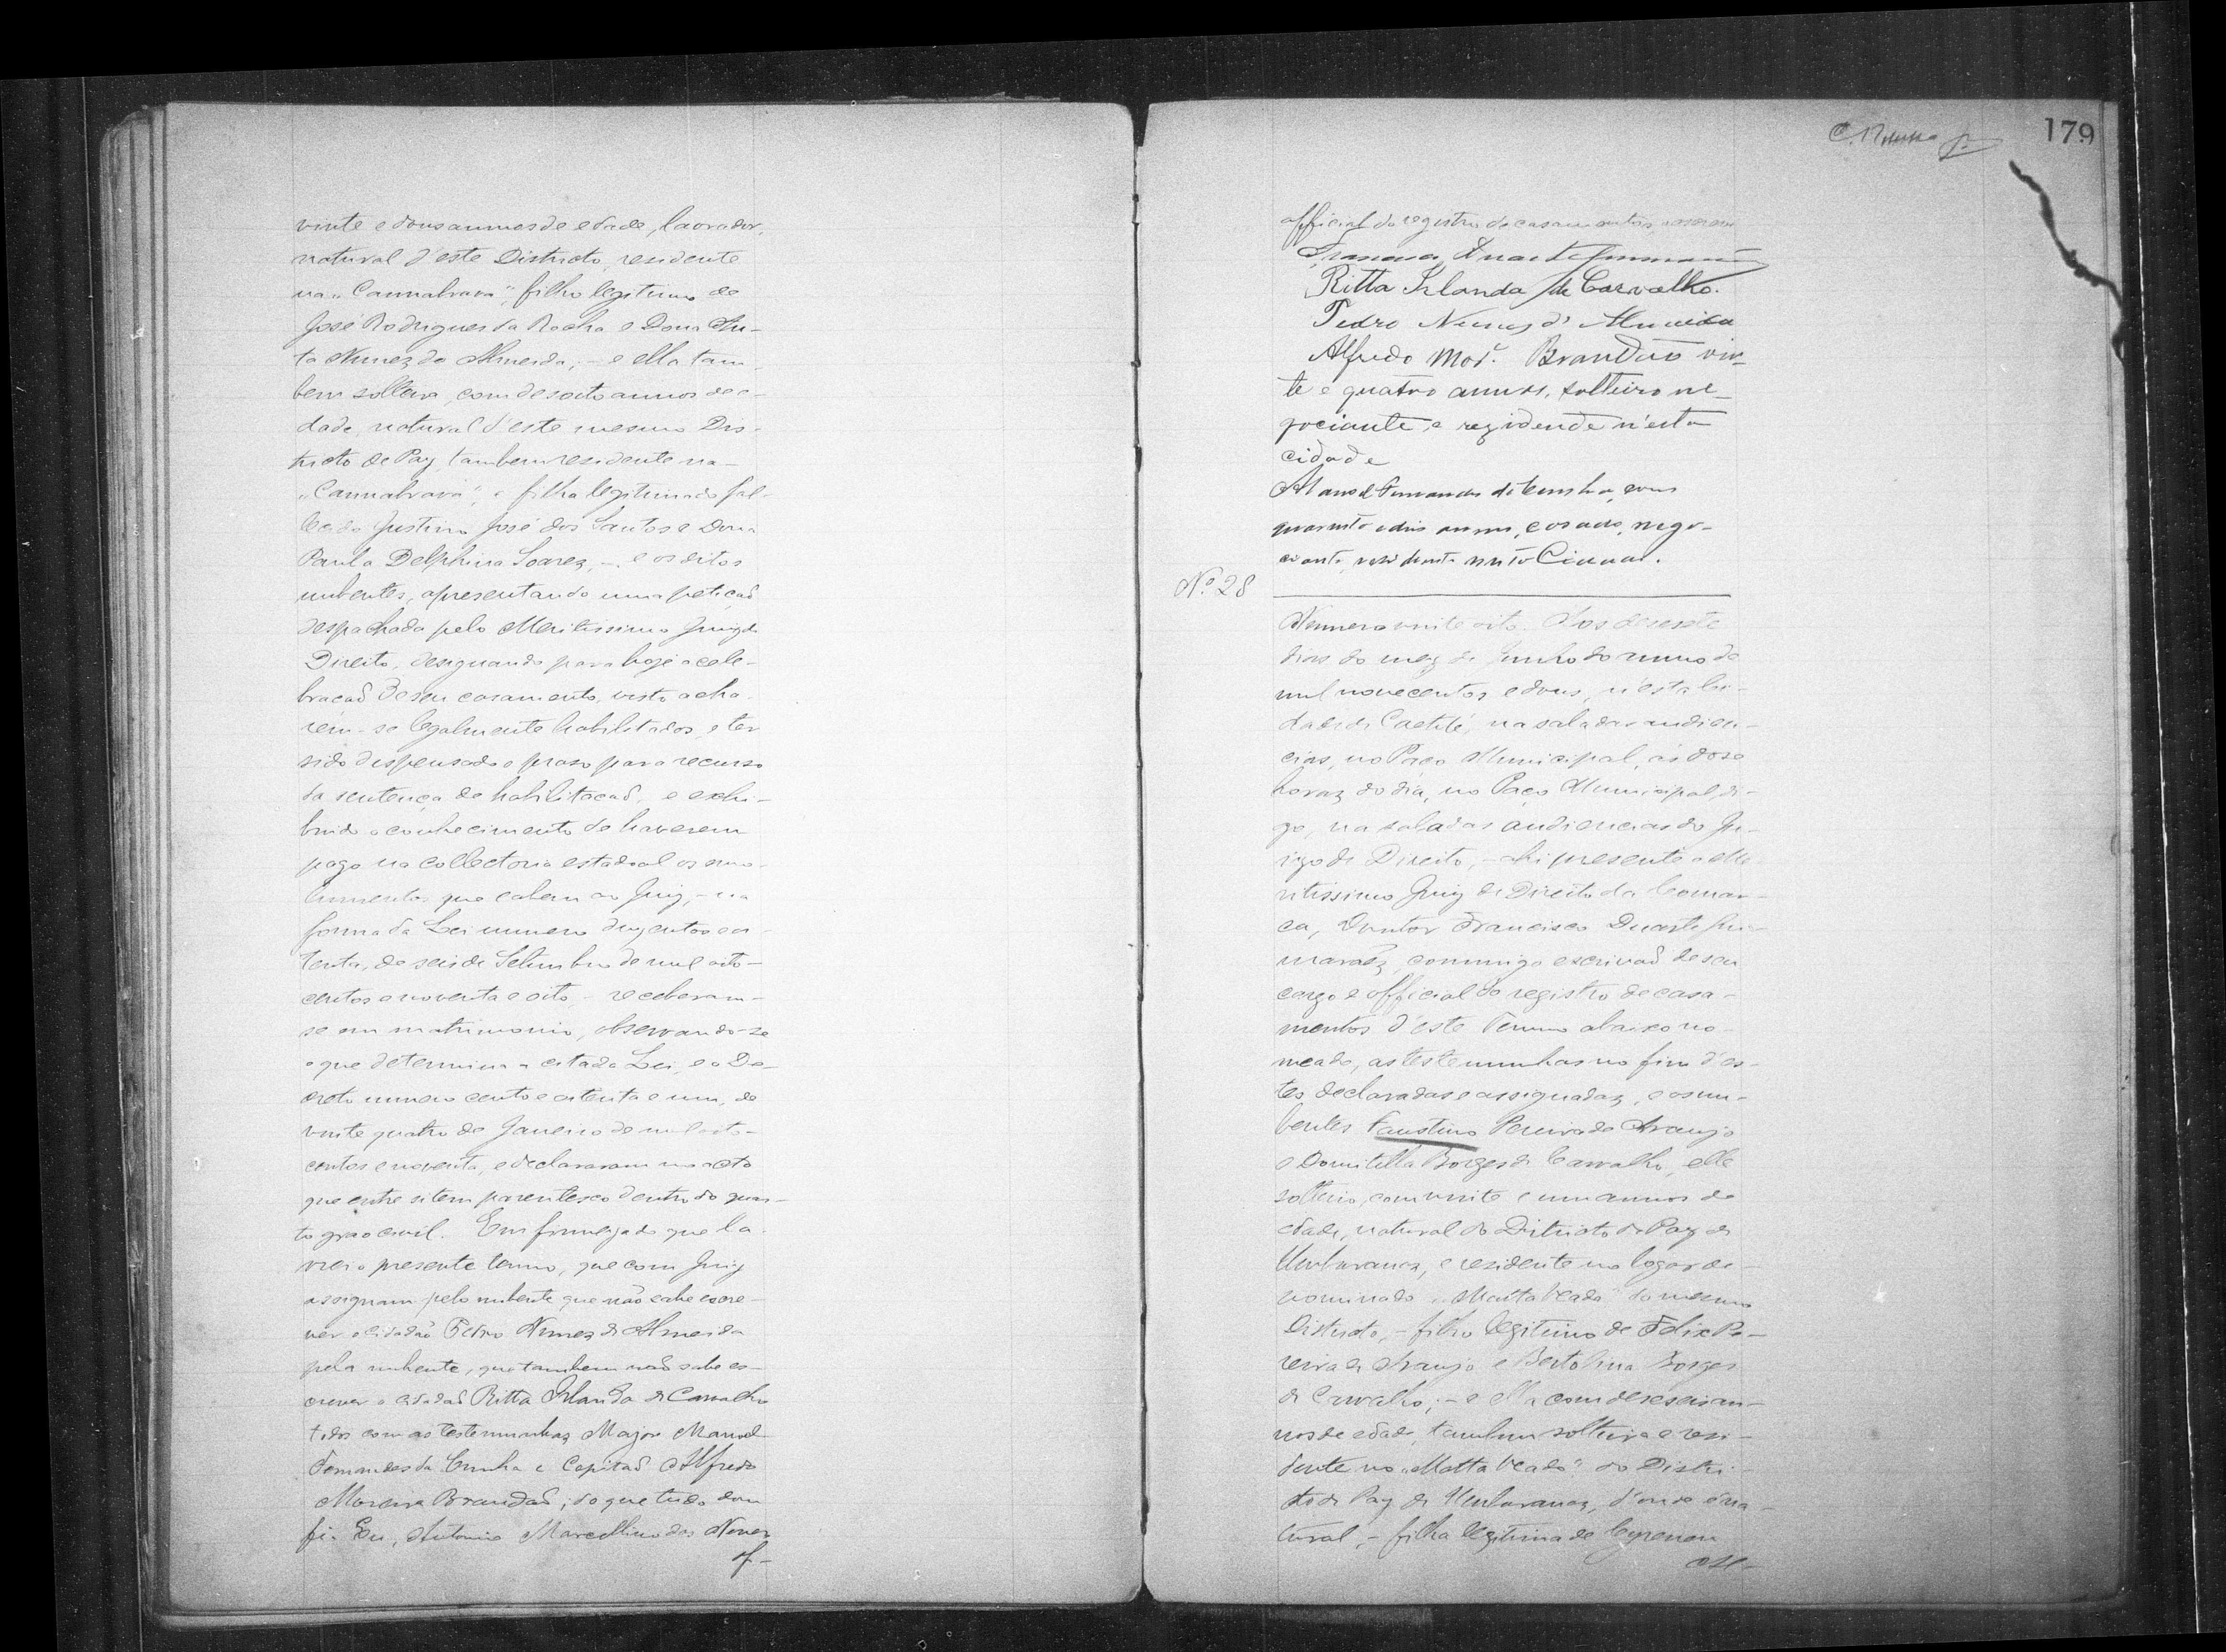 vinte e dous annos de edade, lavrador,
natural d'este Districto, residente
na "Cannabrava", filho legitimo de
José Rodrigues da Rocha e Dona An-
ta Nunes de Almeida; - e ella tam-
bem solteira, com desoito annos de e-
dade, natural d'este mesmo Dis-
tricto de Paz, tambem residente na
"Cannabrava", e filha legitima do fal-
lecido Justino José dos Santos e Dona
Paula Delphina Soares, - e os ditos
nubentes, apresentando uma petição
despachada pelo Meritissimo Juiz de
Direito, designando para hoje a cele-
bração de seu casamento, visto acha-
rem-se legalmente habilitados, e ter
sido dispensado o praso para recurso
da sentença de habilitação, e exhi-
bindo o conhecimento de haverem
pago na collectoria estadoal os emo-
lumentos que cabem ao Juiz, - na
forma da Lei numero dusentos e oi-
tenta, de seis de Setembro de mil oito-
centos e noventa e oito, - receberam-
se em matrimonio, observando-se
o que determina a citada Lei, e o De-
creto numero cento e oitenta e um, de
vinte quatro de Janeiro de mil oito-
centos e noventa, e declararam no acto
que entre si tem parentesco dentro do quar-
to grao civil. Em firmeza do que la-
vrei o presente termo, que com Juiz
assignam pelo nubente que não sabe escre-
ver o cidadão Pedro Nunes de Almeida
pela nubente, que tambem não sabe es-
crever o cidadão Ritta Irlanda de Carvalho
todos com as testemunhas Major Manoel
Fernandes da Cunha e Capitão Alfredo
Moreira Brandão; do que tudo dou
fé. Eu, Antonio Marcellino das Neves
of-
179
official do registro de casamentos, o escrevi
Ritta Irlanda de Carvalho.
Pedro Nunes d' Almeida
Alfredo Mor.ª Brandão vin-
te e quatro annos, solteiro ne-
gociante, e rezidende n'esta
cidade
Manoel Fernandes da Cunha, com
quarenta e dois annos, casado, nego-
ciante, residente nesta Cidade.
Nº 28
Numero vinte oito. Aos desesete
dias do mez de Junho do anno de
mil novecentos e dous, n'esta Ci-
dade de Caetité, na sala das audien-
cias, no Paço Municipal, ás dose
horas do dia, no Paço Municipal, di-
go, na sala das audiencias do Ju-
izo de Direito, - ahi presente o Me-
ritissimo Juiz de Direito da Comar-
ca, Doutor Francisco Duarte Gui-
marães, commigo escrivão de seu
cargo e official do registro de casa-
mentos d'este Termo abaixo no-
meado, as testemunhas no fim d'es-
tes declaradas e assignadas, e os nu-
bentes Faustino Pereira de Araujo
e Domitilla Borges de Carvalho, elle
solteiro, com vinte e um annos de
edade, natural do Districto de Paz de
Umburanas, e residente no logar de-
nominado "Matta Veado" do mesmo
Districto, - filho legitimo de Felix Pe-
reira de Araujo e Bertolina Borges
de Carvalho; - e ella com deseseis an-
nos de edade, tambem solteira e resi-
dente no "Matta Veado" do Distri-
cto de Paz de Umburanas, d'onde é na-
tural, - filha legitima de